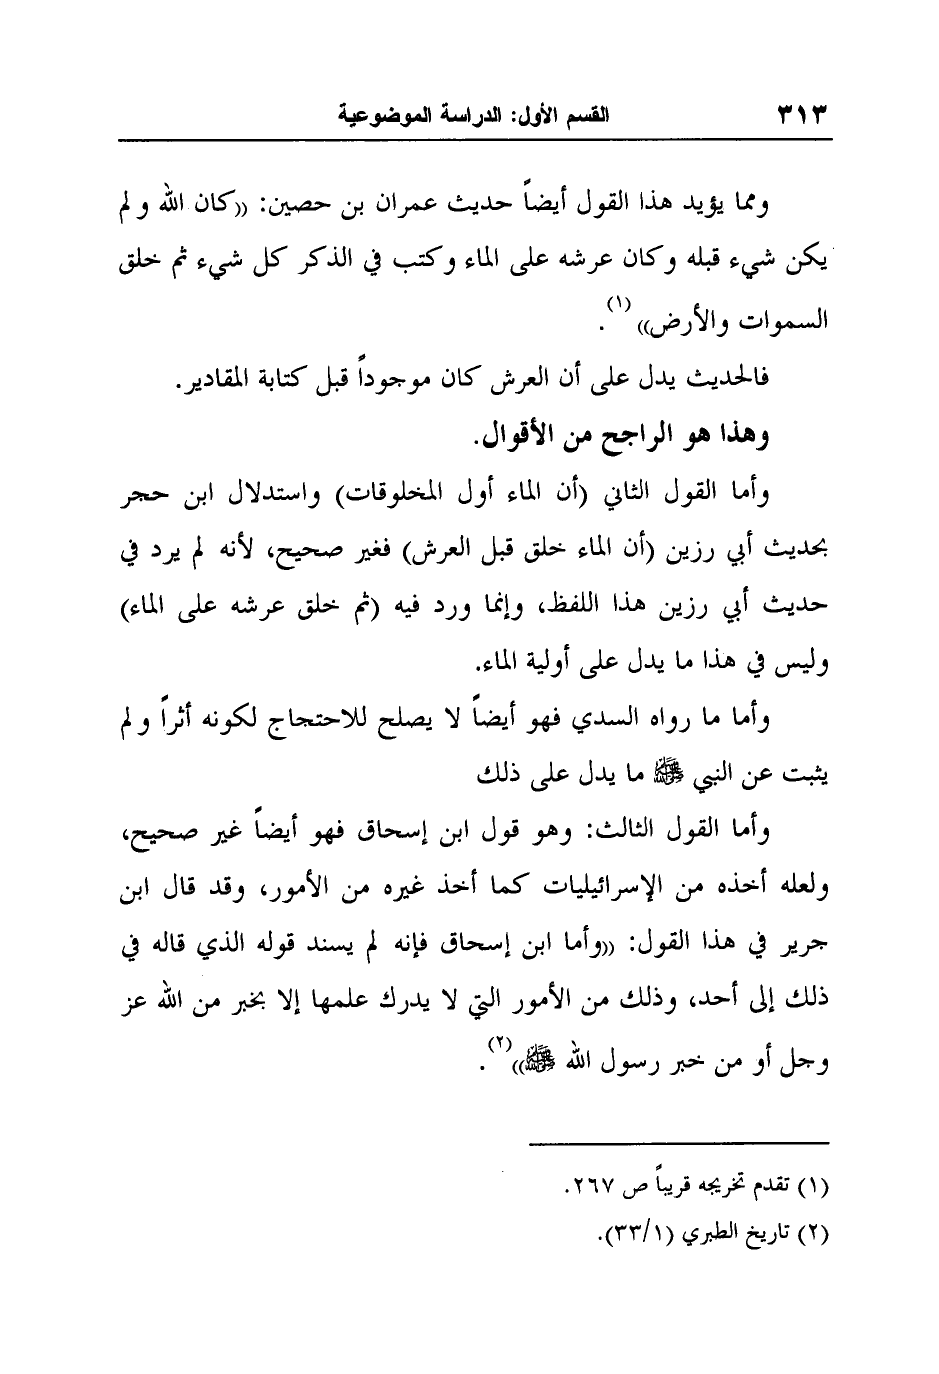 ٣١٣ القسم الأول: الدراسة الموضوعية
ومما يؤيد هذا القول أيضاً حديث عمران بن حصين: ((كان الله ولم
يكن شيء قبله وكان عرشه على الماء وكتب في الذكر كل شيء ثم خلق
السموات والأرض))(١).
فالحديث يدل على أن العرش كان موجوداً قبل كتابة المقادير.
وهذا هو الراجح من الأقوال.
وأما القول الثاني (أن الماء أول المخلوقات) واستدلال ابن حجر
بحديث أبي رزين (أن الماء خلق قبل العرش) فغير صحيح، لأنه لم يرد في
حديث أبي رزين هذا اللفظ، وإنما ورد فيه (ثم خلق عرشه على الماء)
وليس في هذا ما يدل على أولية الماء.
وأما ما رواه السدي فهو أيضاً لا يصلح للاحتجاج لكونه أثراً ولم
يثبت عن النبي ﷺ ما يدل على ذلك
وأما القول الثالث: وهو قول ابن إسحاق فهو أيضاً غير صحيح،
ولعله أخذه من الإسرائيليات كما أخذ غيره من الأمور، وقد قال ابن
جرير في هذا القول: ((وأما ابن إسحاق فإنه لم يسند قوله الذي قاله في
ذلك إلى أحد، وذلك من الأمور التي لا يدرك علمها إلا بخبر من الله عز
وجل أو من خبر رسول الله ﷺ))(٢).
(١) تقدم تخريجه قريباً ص ٢٦٧.
(٢) تاريخ الطبري (٣٣/١).